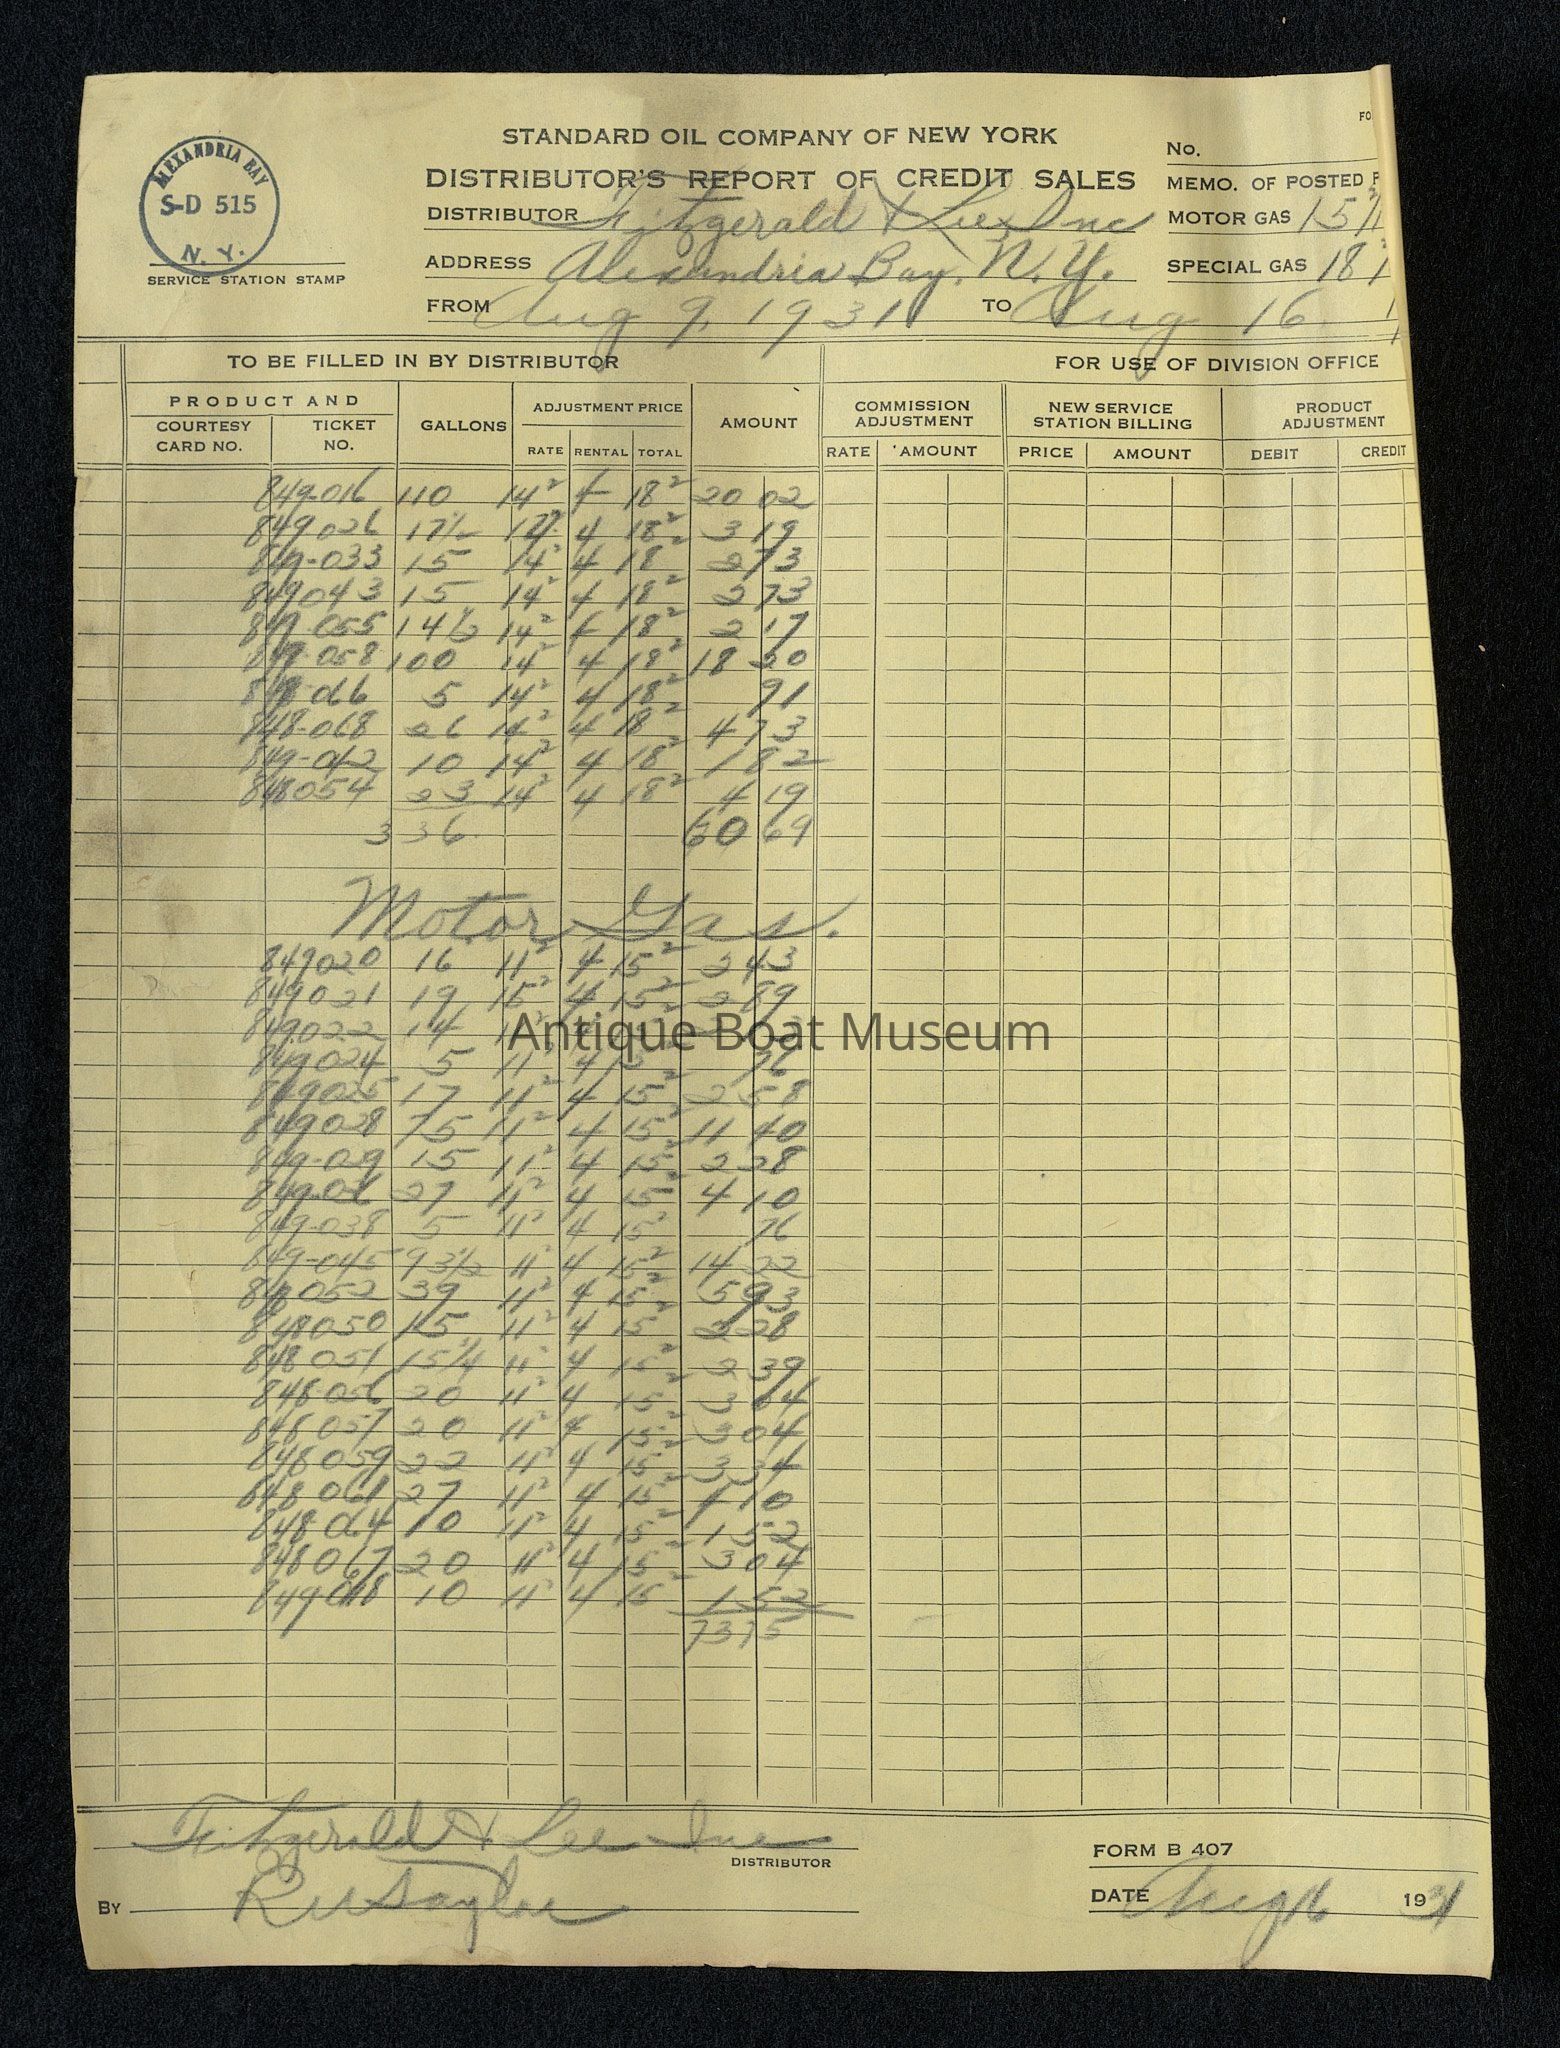 FO
STANDARD OIL COMPANY OF NEW YORK
No.
DISTRIBUTOR'S REPORT OF CREDIT SALES
MEMO. OF POSTED P
ALEXANDRIA BAY
S-D 515
N. Y.
SERVICE STATION STAMP
DISTRIBUTOR Fitzgerald & Lee Inc
MOTOR GAS 15
ADDRESS Alexandria Bay, N. Y.
SPECIAL GAS 18
FROM Aug 9, 1931 TO Aug 16
TO BE FILLED IN BY DISTRIBUTOR FOR USE OF DIVISION OFFICE
PRODUCT AND GALLONS ADJUSTMENT PRICE AMOUNT COMMISSION ADJUSTMENT NEW SERVICE STATION BILLING PRODUCT ADJUSTMENT
COURTESY CARD NO. TICKET NO. RATE RENTAL TOTAL RATE AMOUNT PRICE AMOUNT DEBIT CREDIT
849-016 110 14² 4 18² 20 02
849026 17½ 14² 4 18² 3 19
849-033 15 14² 4 18² 2 73
849043 15 14² 4 18² 2 73
849-055 14½ 14² 4 18² 2 17
849-058 100 14² 4 18² 18 20
848-066 5 14² 4 18² 91
848-068 26 14² 4 18² 4 73
849-042 10 14² 4 18² 1 82
848054 23 14² 4 18² 4 19
336 60 69
Motor Gas.
849020 16 11² 4 15² 2 43
849021 19 15² 4 15² 2 89
849022 14 11² 4
849024 5 11² 4 15² 76
849025 17 11² 4 15² 2 58
849028 75 11² 4 15² 11 40
849-029 15 11² 4 15² 2 28
27 11² 4 15² 4 10
849-038 5 11² 4 15² 76
849-045 93½ 11² 4 15² 14 22
848052 39 11² 4 15² 5 93
848050 15 11² 4 15² 2 28
848051 15¾ 11² 4 15² 2 39
848-056 20 11² 4 15² 3 04
848057 20 11² 4 15² 3 04
848059 22 11² 4 15² 3 34
848061 27 11² 4 15² 4 10
848-064 10 11² 4 15² 1 52
848067 20 11² 4 15² 3 04
849018 10 11² 4 15² 1 52
73 75
Antique Boat Museum
Fitzgerald & Lee Inc
DISTRIBUTOR
FORM B 407
BY
DATE Aug 16 1931